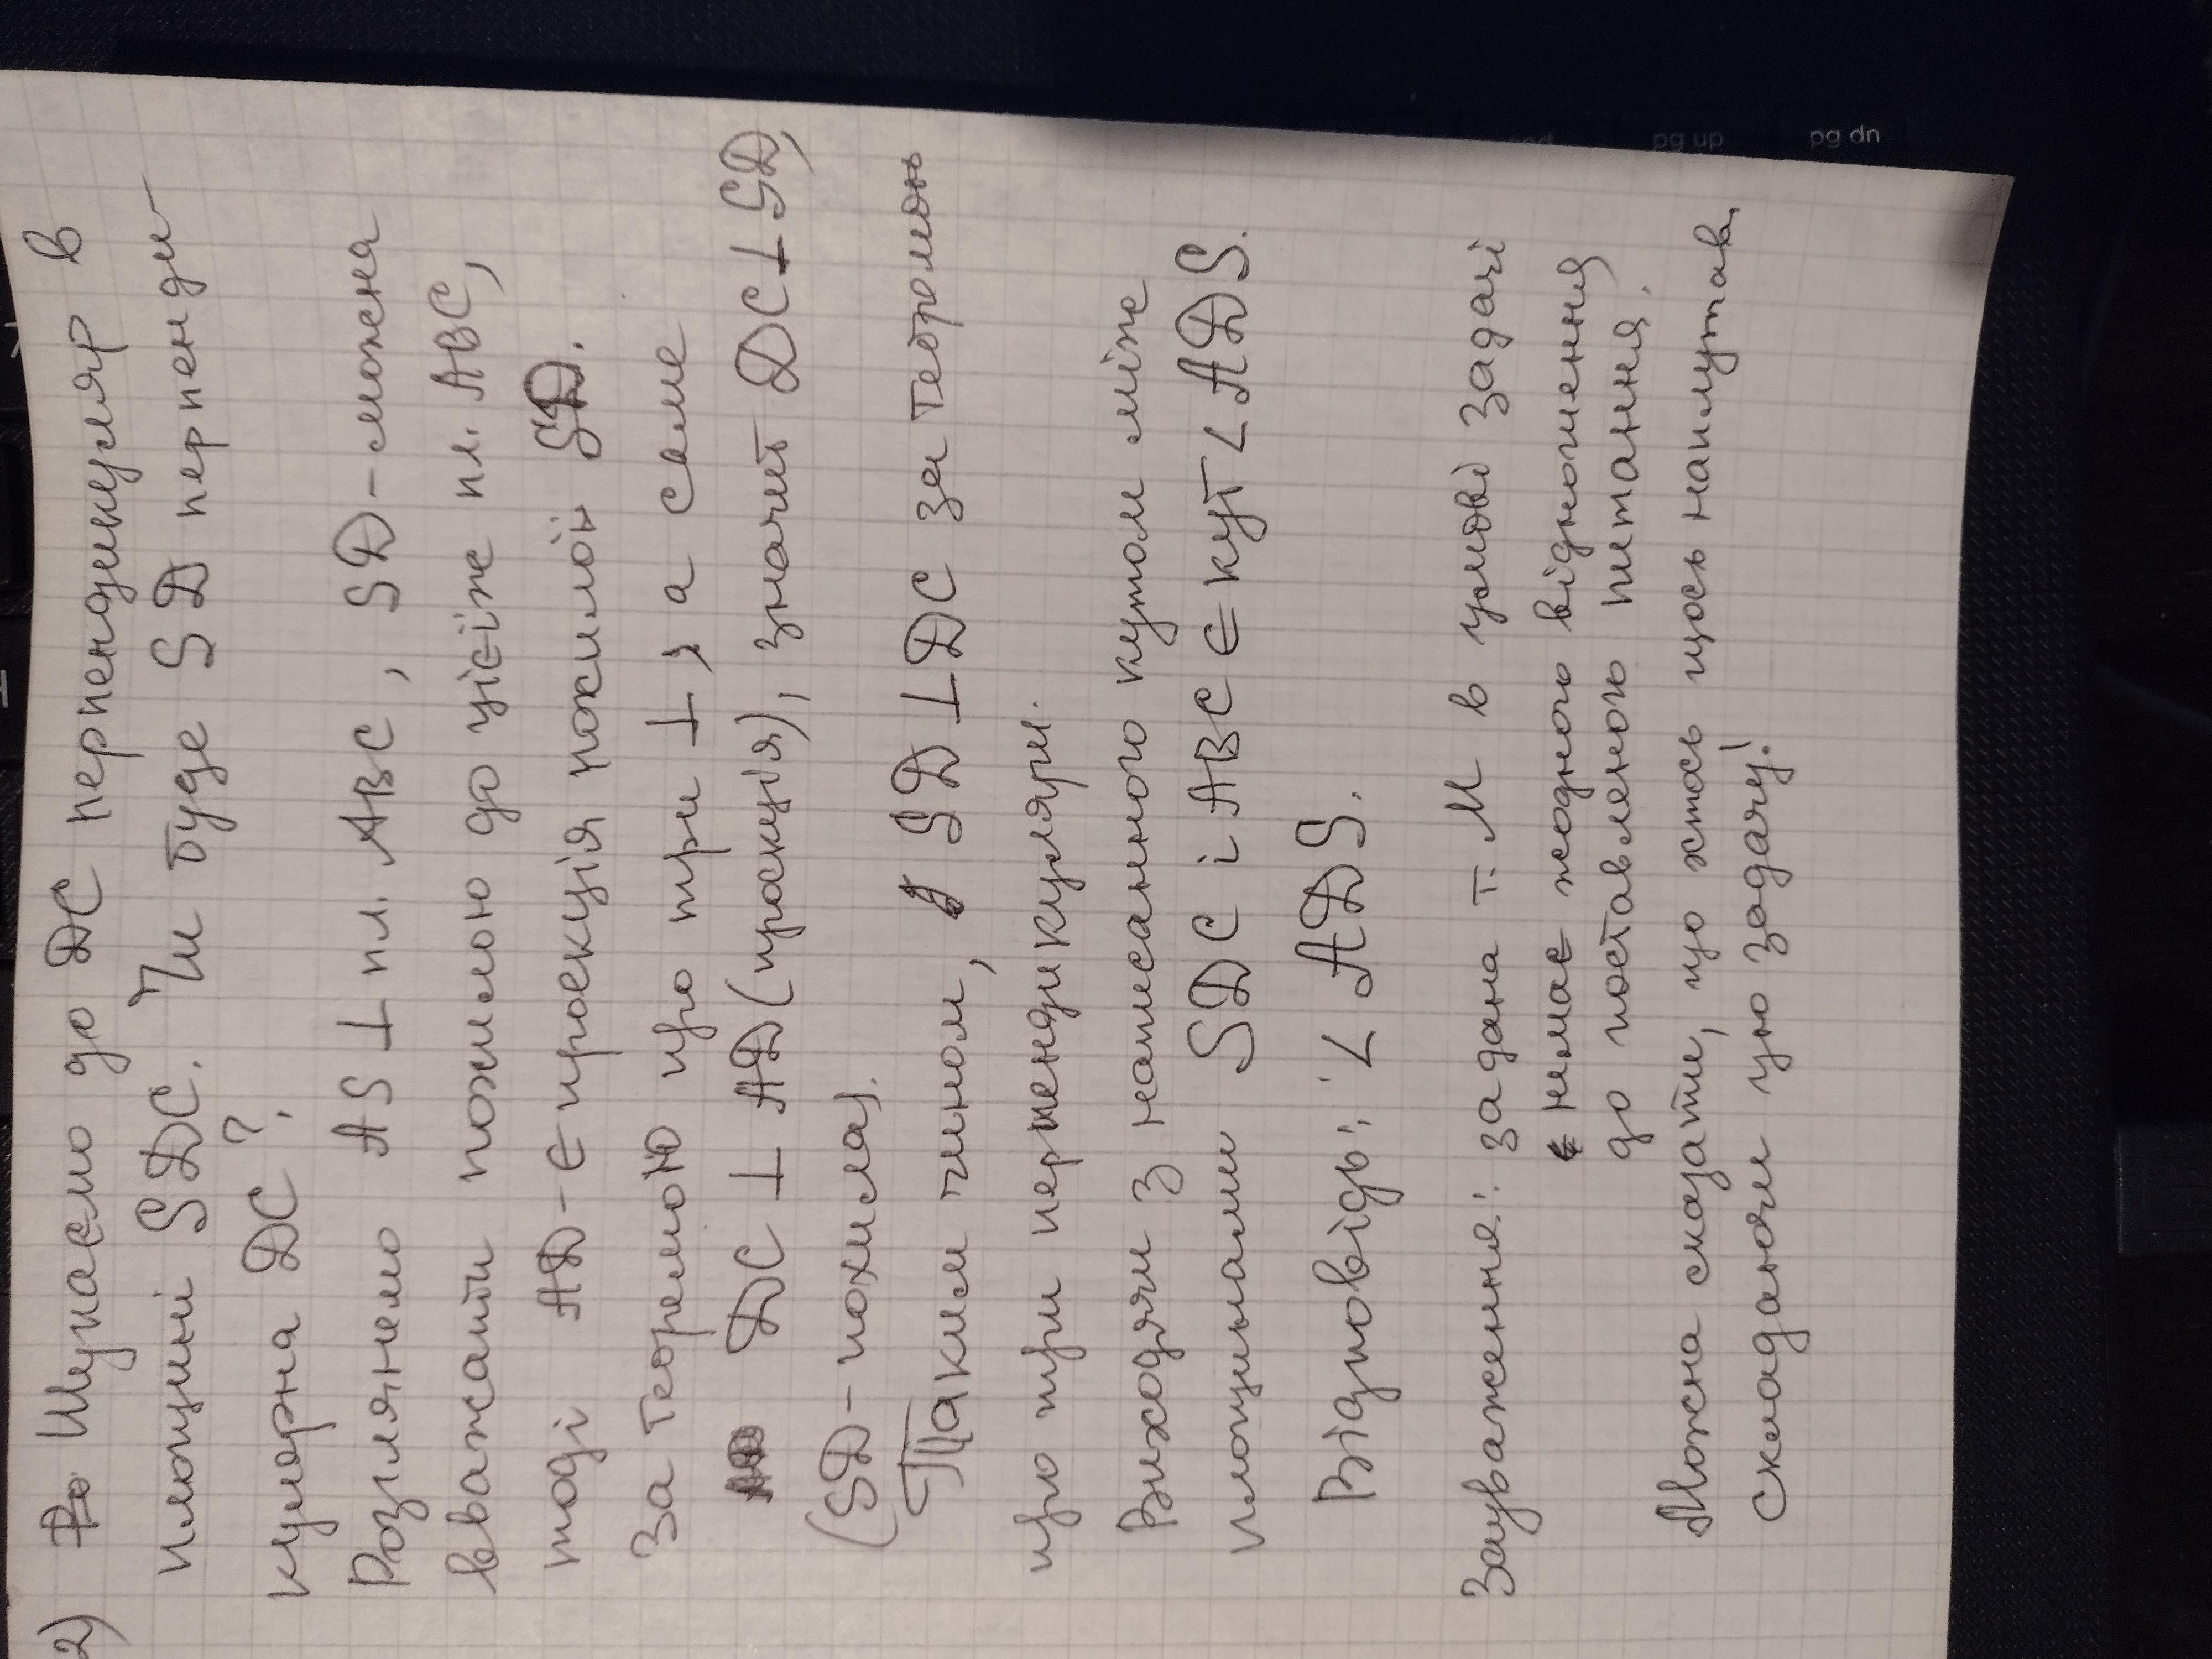 2) Шукаємо до DC перпендикуляр в
площині SDC. Чи буде SD перпенди-
кулярна DC?
Розглянемо AS ⊥ пл. ABC, SD - можна
вважати похилою до цієї ж пл. ABC,
тоді AD - є проекція похилої SD.
За теоремою про три ⊥, а саме
DC ⊥ AD (проекція), значит DC ⊥ SD,
(SD - похила).
Таким чином, SD ⊥ DC за теоремою
про три перпендикуляри.
Виходячи з написанного кутом між
площинами SDC і ABC є кут ∠ ADS.
Відповідь: ∠ ADS.
Зауваження: задана т. M в умові задачі
немає жодного відношення
до поставленого питання.
Можна сказати, що хтось щось наплутав,
складаючи цю задачу!
pg up
pg dn